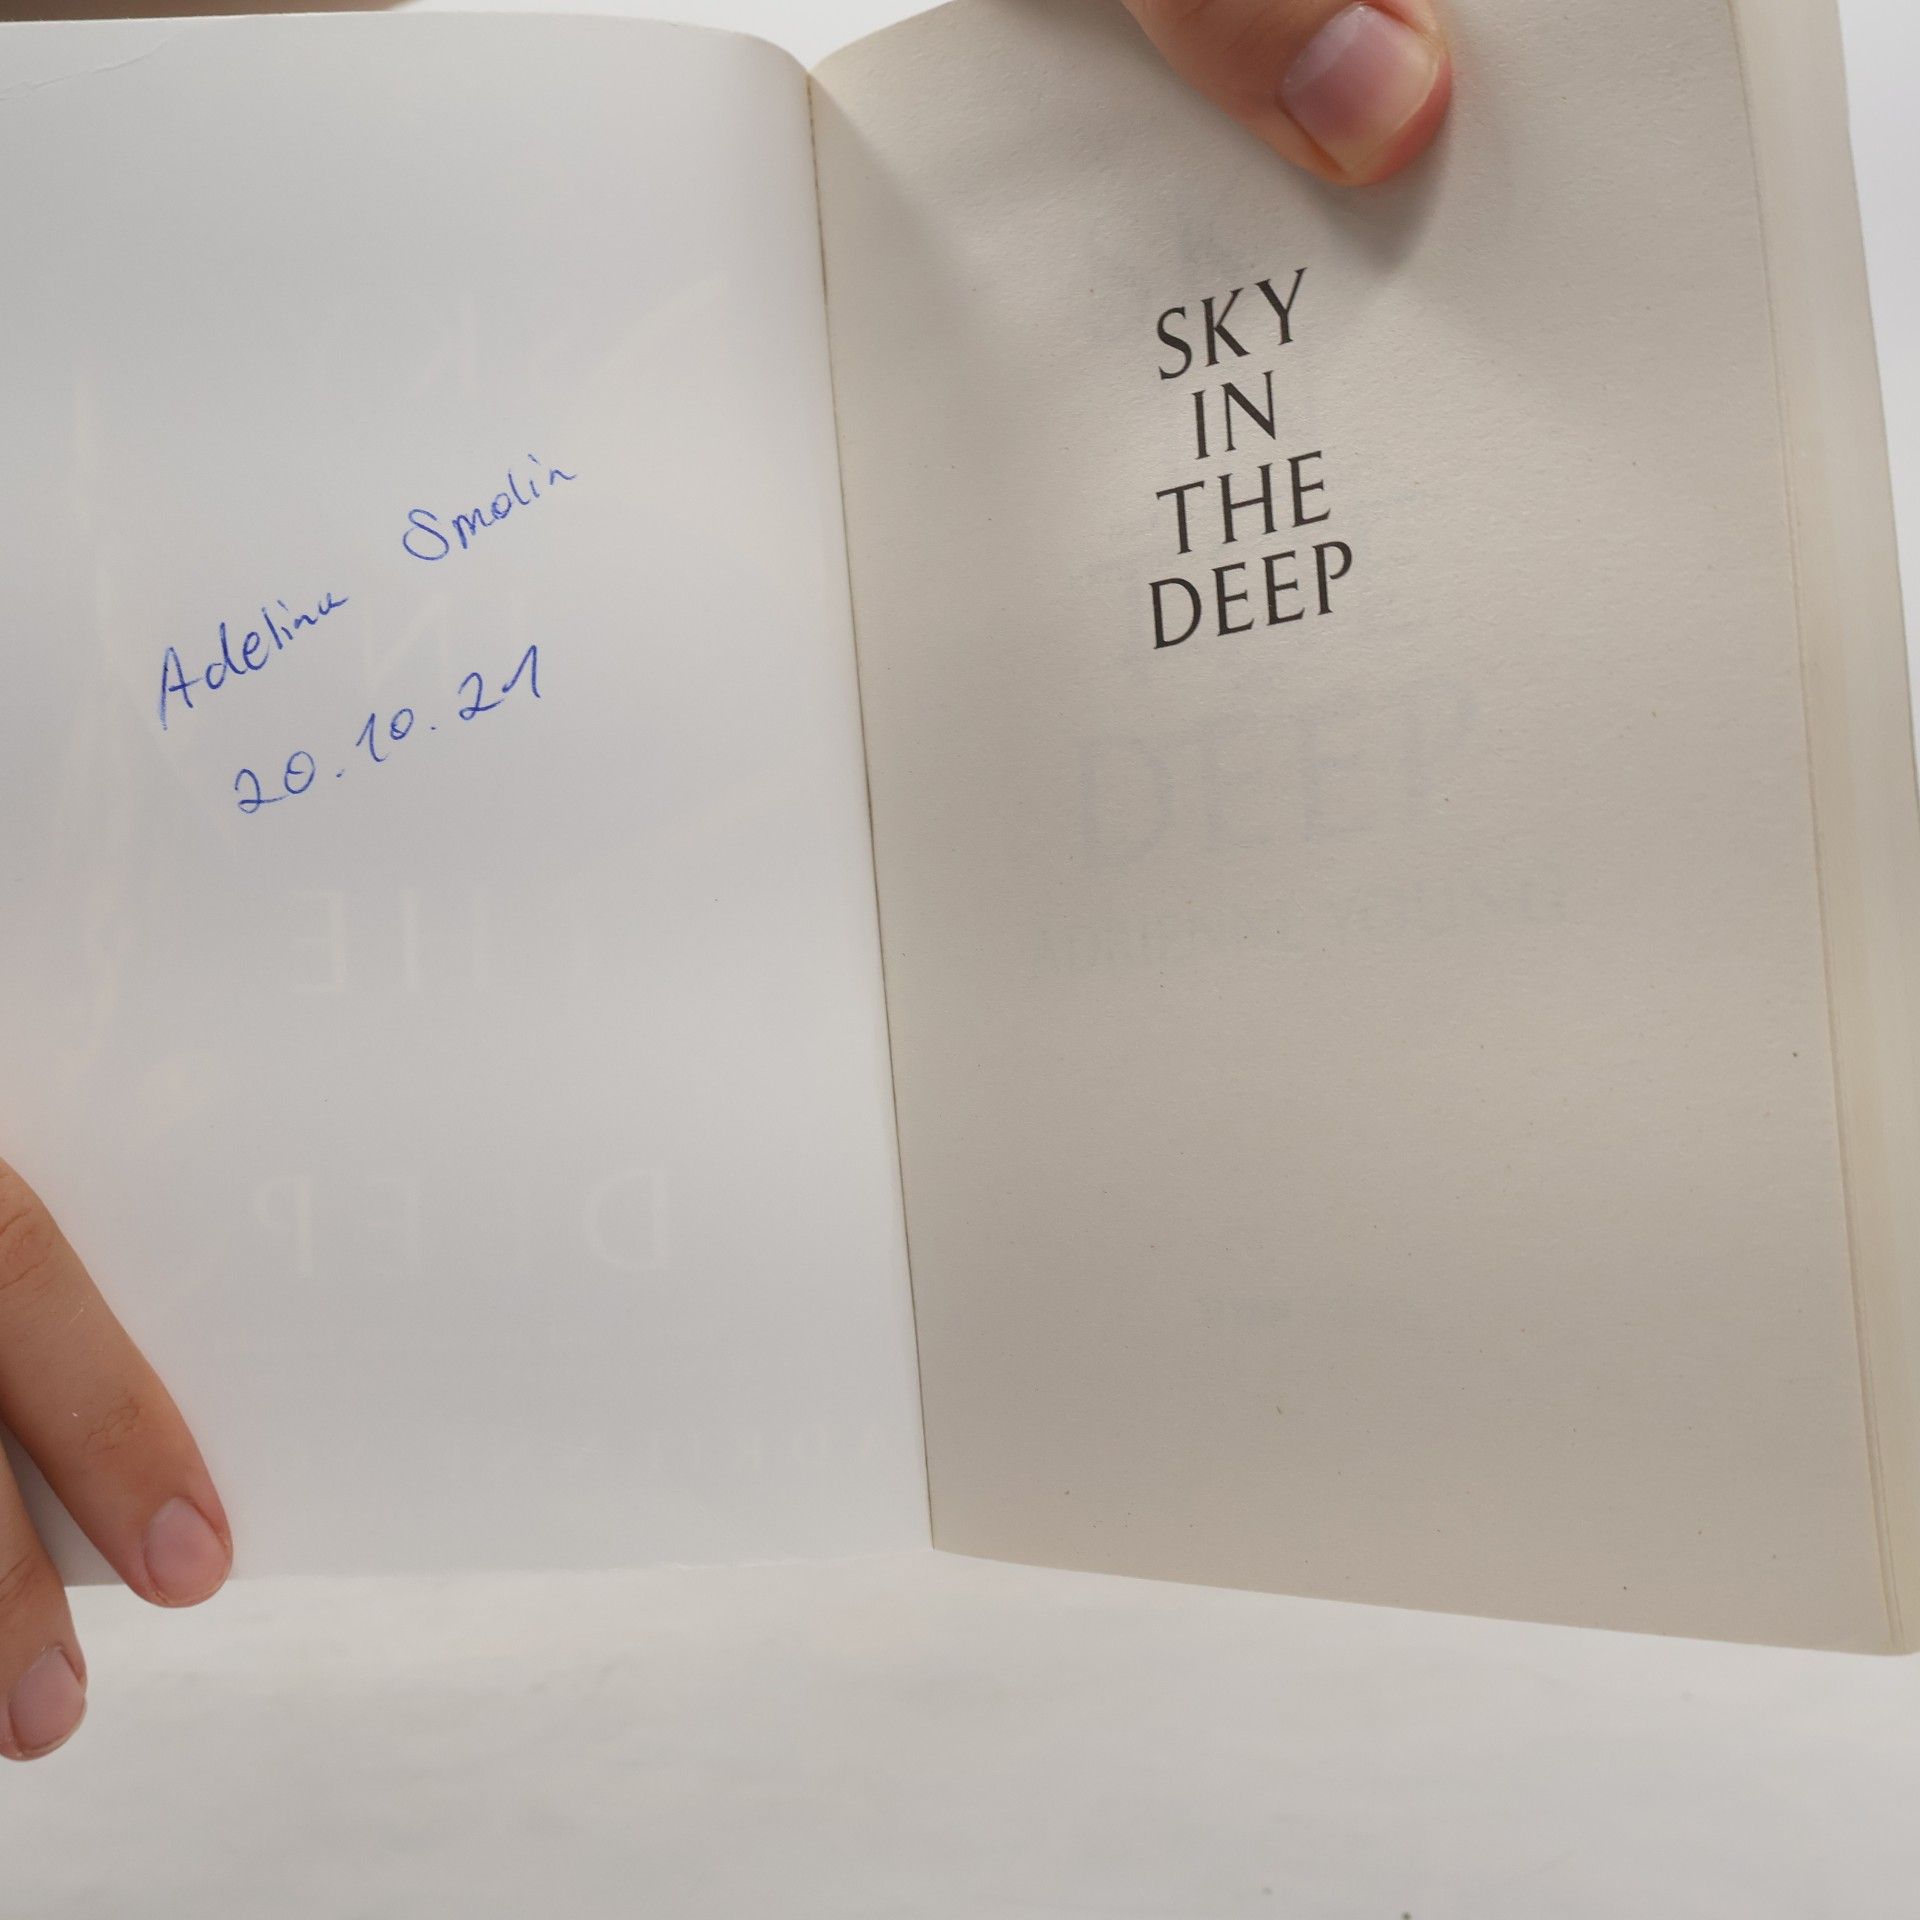 Adelina Smolin
20.10.21
SKY
IN
THE
DEEP